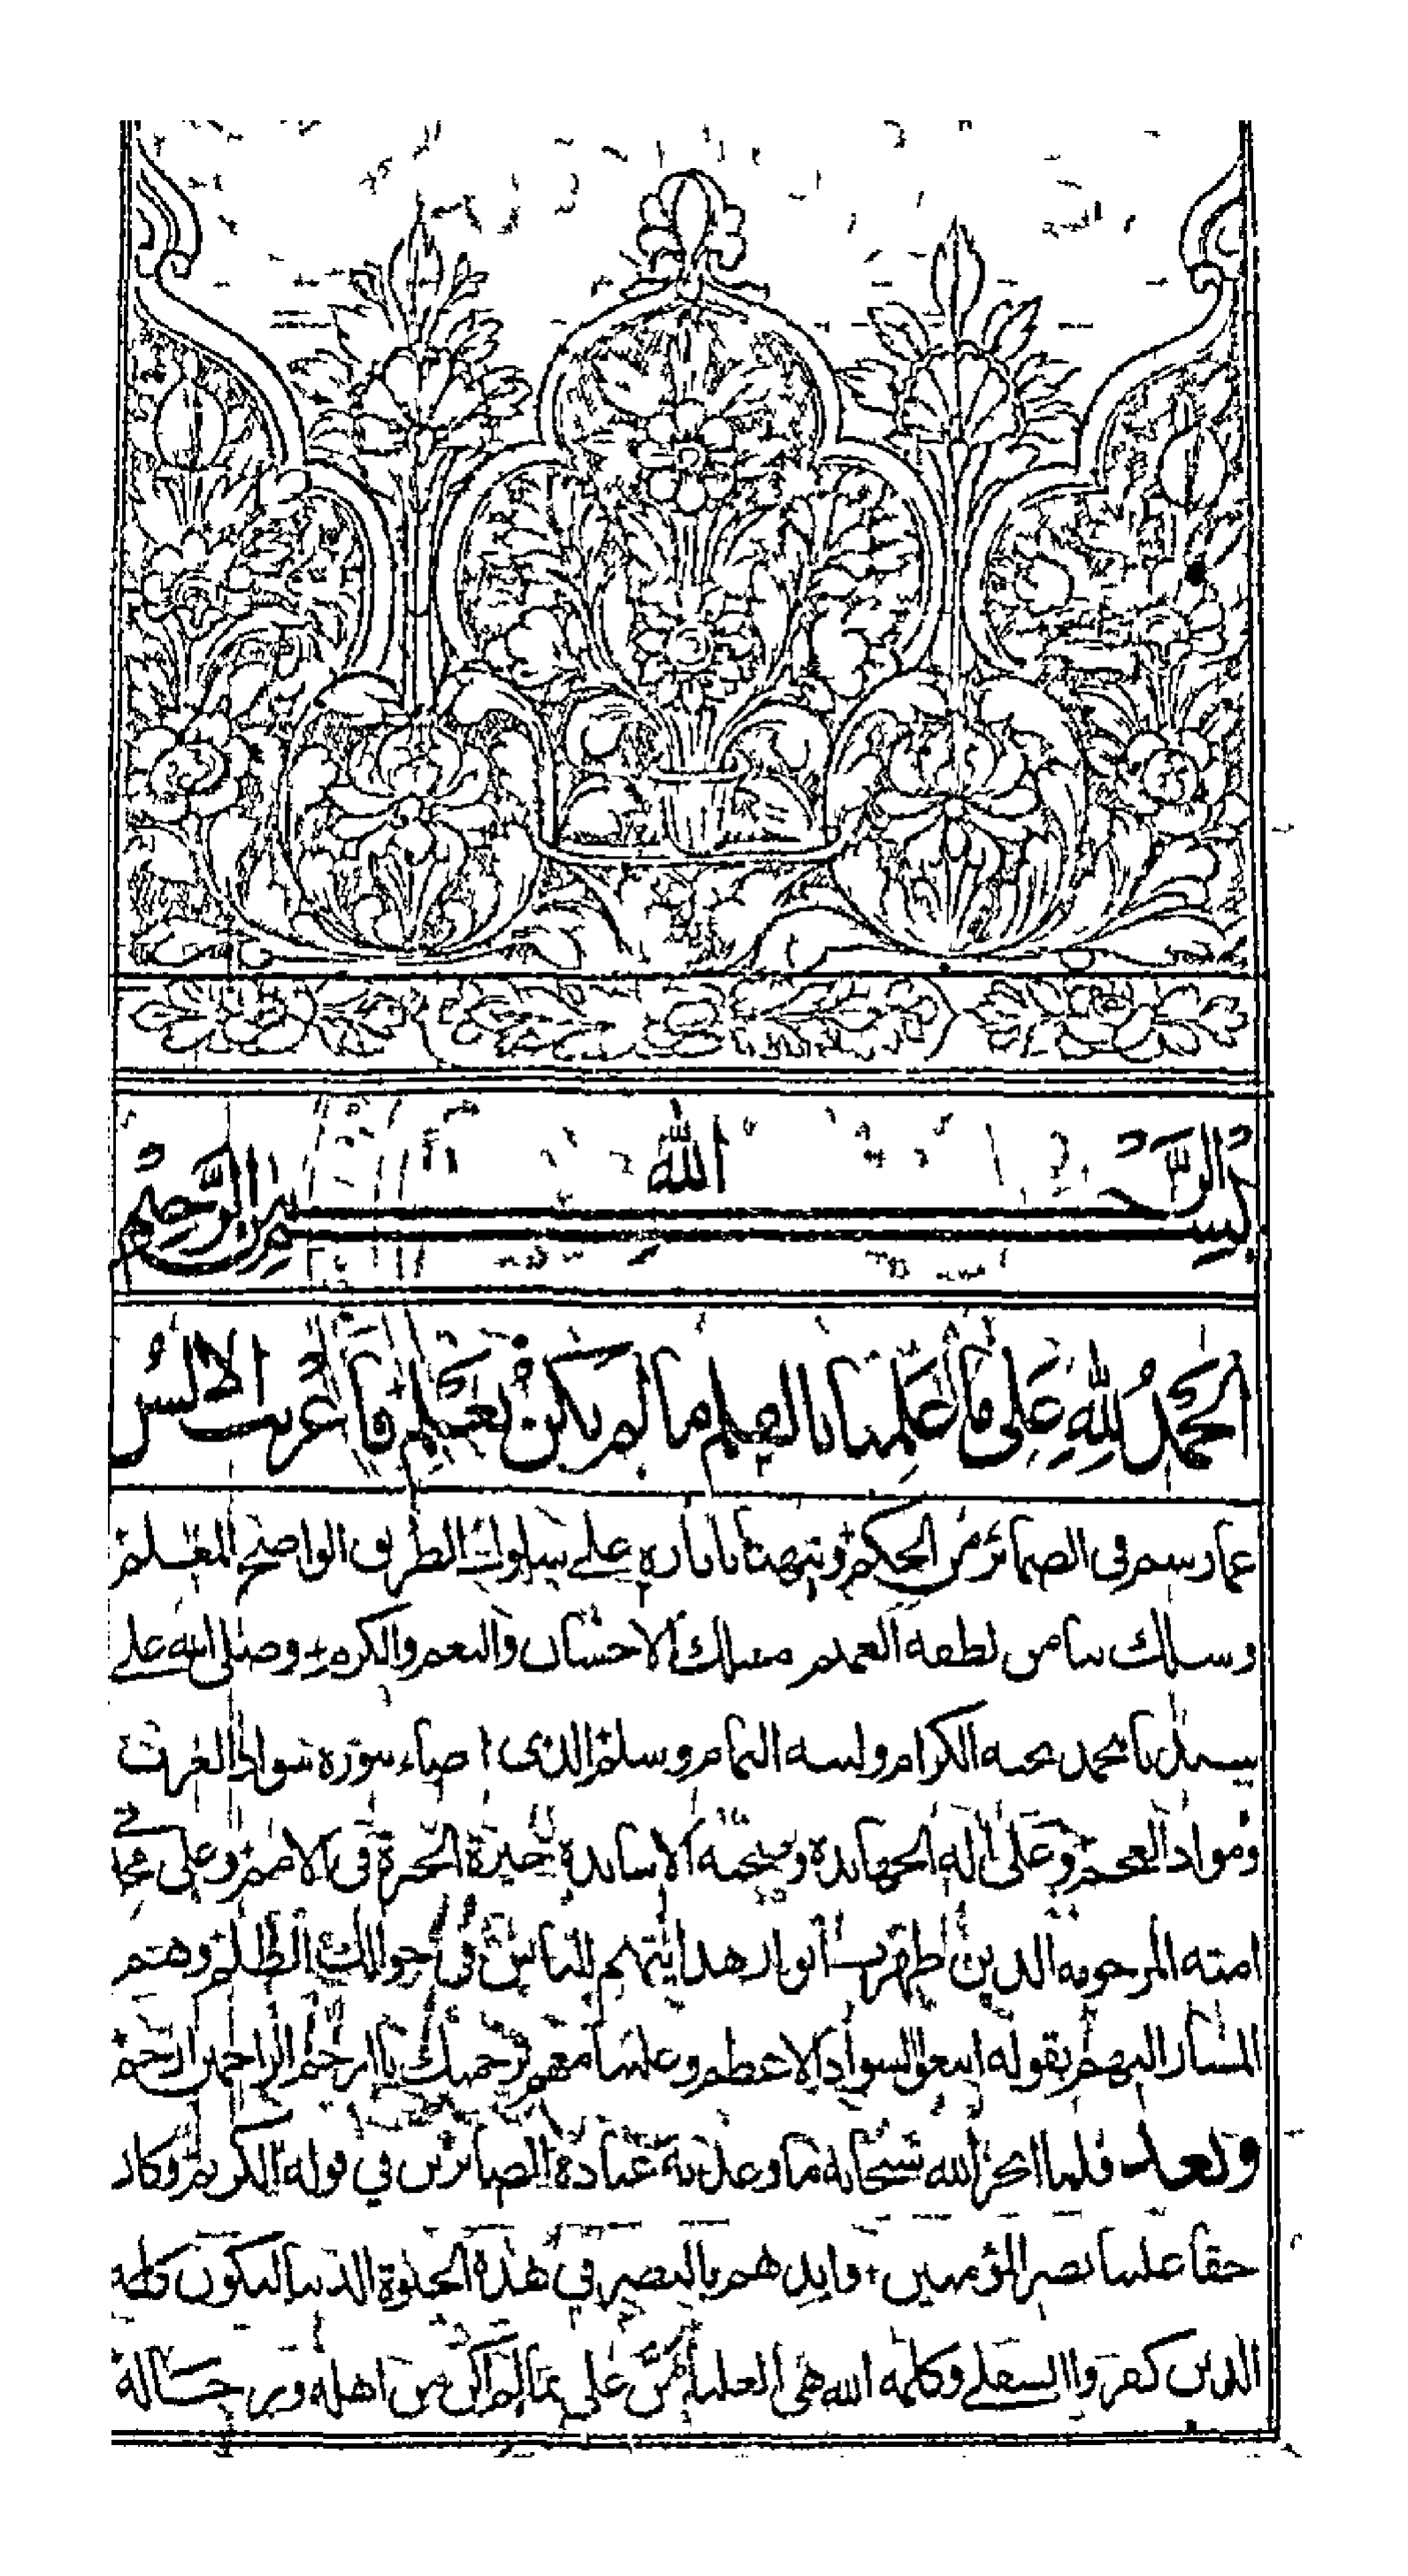 بسم الله الرحمن الرحيم
الحمد لله على ما علمنا بالعلم ما لم يكن نعلم فاعربت الالسن
عما رسم في الضمائر من الحكم ونبهنا باياته على سلوك الطريق الواضح المعلم
وسلك بنا من لطفه العميم مسلك الاحسان والنعم والكرم وصلى الله على
سيدنا محمد الكرام التمام وسلم الذي اضاء بنوره سواد العرب
ومواد العجم وعلى اله الجهابذة وصحبه الاساتذة خيرة الخيرة في الامم وعلى
امته المرحومة الذين ظهرت انوار هدايتهم للناس في حوالك الظلم وهم
المشار اليهم بقوله اتبعوا السواد الاعظم وعلينا معهم برحمتك يا ارحم الراحمين ارحم
وبعد فلما انجز الله سبحانه ما وعد به عباده الصابرين في قوله الكريم وكان
حقا علينا نصر المؤمنين وايدهم بالنصر في هذه الحيوة الدنيا لتكون كلمة
الذين كفروا السفلى وكلمة الله هي العليا من على بما لم اكن من اهله